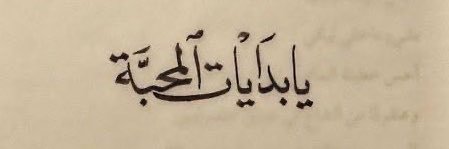 يا بدَايْات ٱلمحبَّة